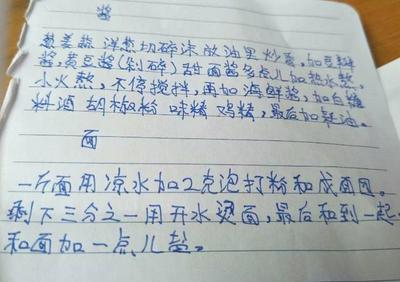 酱
葱姜蒜 洋葱切碎沫放油里炒香,加豆瓣
酱,黄豆酱(剁碎)甜面酱多点儿加热水熬,
小火熬,不停搅拌,再加海鲜酱,加白糖
料酒 胡椒粉 味精 鸡精,最后加耗油。
面
一斤面用凉水加2克泡打粉和成面团。
剩下三分之一用开水烫面,最后和到一起
和面加一点儿盐。